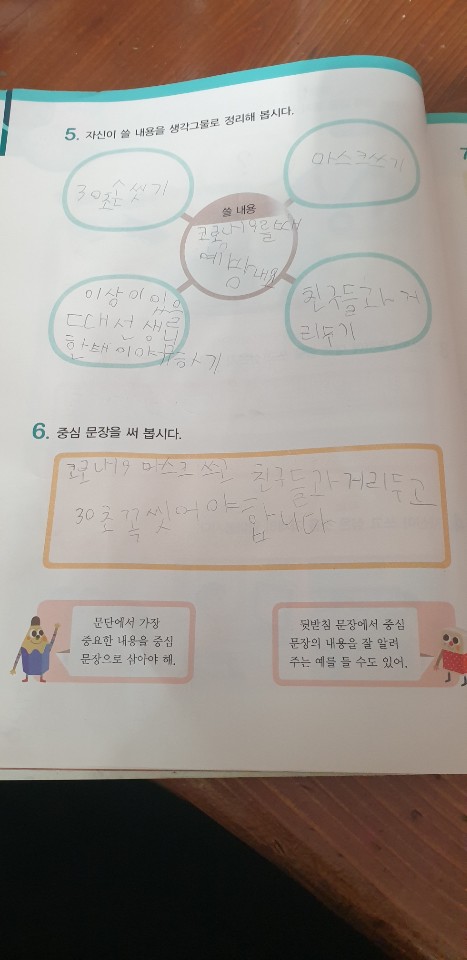 5. 자신이 쓸 내용을 생각그물로 정리해 봅시다.
30초 씻기
마스크쓰기
쓸 내용
코롱나19할때
예방내용
이상이 있을
때 선생님
한태 이야기하기
친구들과 거
리두기
6. 중심 문장을 써 봅시다.
코로나19 마스크 쓰고 친구들과 거리두고
30초 꼭 씻어야
합니다
문단에서 가장
중요한 내용을 중심
문장으로 삼아야 해.
뒷받침 문장에서 중심
문장의 내용을 잘 알려
주는 예를 들 수도 있어.
7